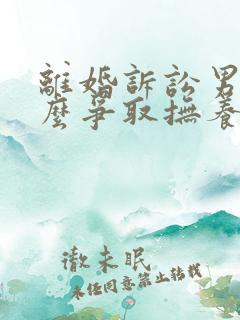 離婚訴訟男
麼爭取撫養
徹未眠
未經同意禁止轉載